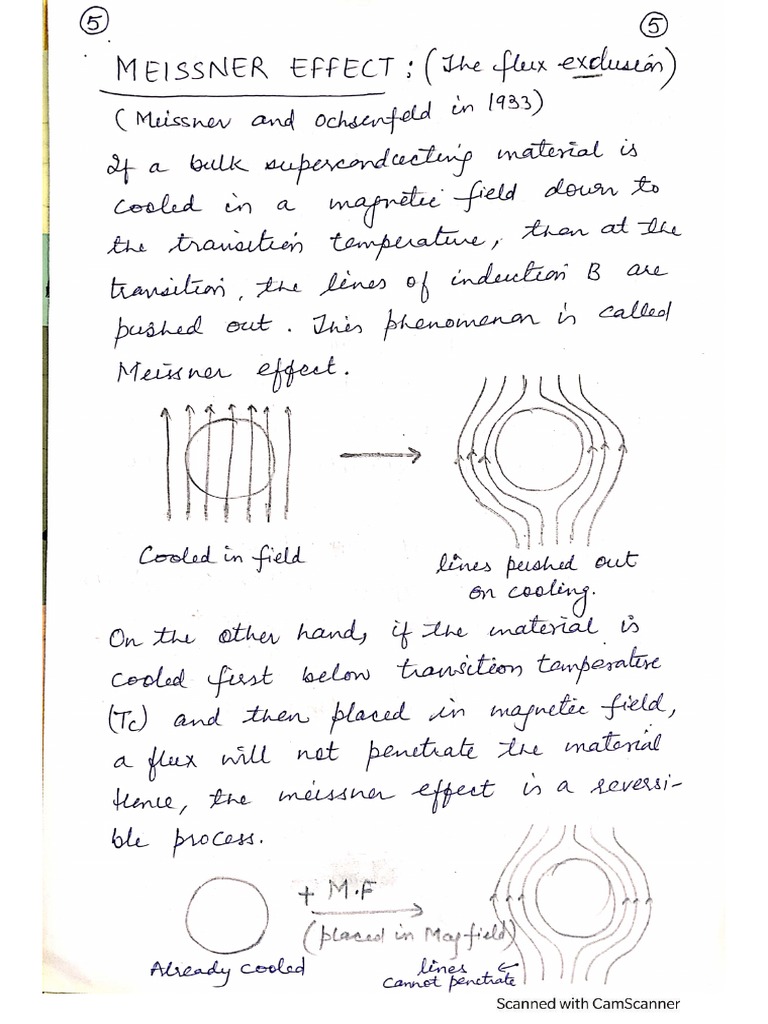 5 5
MEISSNER EFFECT : (The flux exclusion)
(Meissner and Ochsenfeld in 1933)
If a bulk superconducting material is
cooled in a magnetic field down to
the transition temperature, then at the
transition, the lines of induction B are
pushed out. This phenomenon is called
Meissner effect.
Cooled in field
lines pushed out
on cooling.
On the other hand, if the material is
cooled first below transition temperature
(Tc) and then placed in magnetic field,
a flux will not penetrate the material
Hence, the meissner effect is a reversi-
ble process.
+ M.F
(placed in Mag field)
Already cooled
lines
cannot penetrate
Scanned with CamScanner